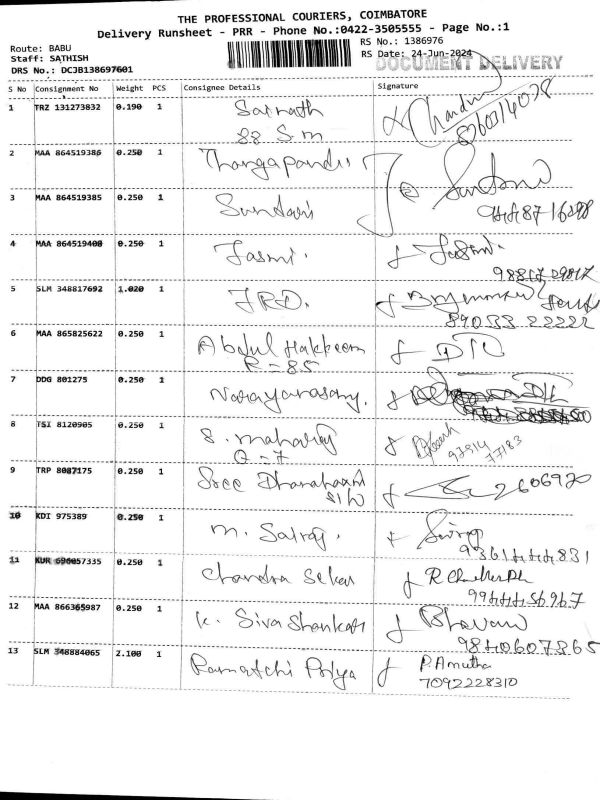 THE PROFESSIONAL COURIERS, COIMBATORE
Delivery Runsheet - PRR - Phone No.:0422-3505555 - Page No.:1
Route: BABU
RS No.: 1386976
Staff: SATHISH
RS Date: 24-Jun-2024
DOCUMENT DELIVERY
DRS No.: DCJB138697601
S No Consignment No Weight PCS Consignee Details Signature
1 TRZ 131273832 0.190 1 Sainath
88 S.m
2 MAA 864519386 0.250 1 Thangapandi
3 MAA 864519385 0.250 1 Sundari
4 MAA 864519400 0.250 1 Jasmi.
5 SLM 348817692 1.020 1 JRD.
89033 22222
6 MAA 865825622 0.250 1 Abdul Hakkeem
R-85
7 DDG 801275 0.250 1 Narayanasamy.
8 TSI 8120905 0.250 1
97914
77183
Q-7
9 TRP 8087175 0.250 1 Sree 2606920
10 KDI 975389 0.250 1 m.
9361444831
11 KUR 696057335 0.250 1 Chandra Sekar
9944456967
12 MAA 866365987 0.250 1 K. Siva Shankar
9840607865
13 SLM 348884065 2.100 1 Priya P. Amutha
7092228310